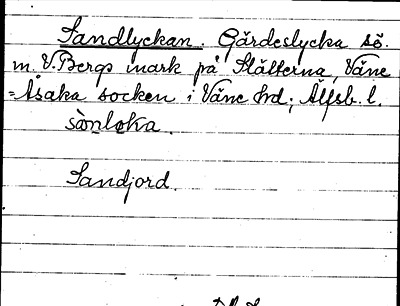 Sandlyckan. Gärdeslycka sö.
m. V. Bergs mark på Slätterna, Väne
=Åsaka socken i Väne hd; Älfsb. l.
sànloka.
Sandjord.